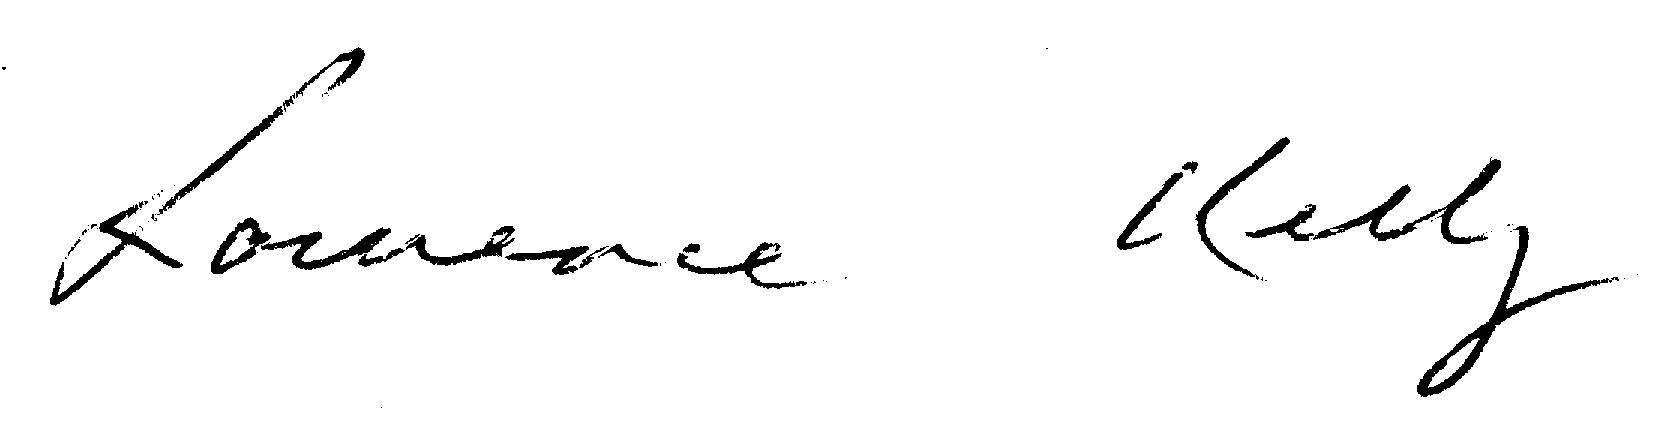 Lawrence Kelly